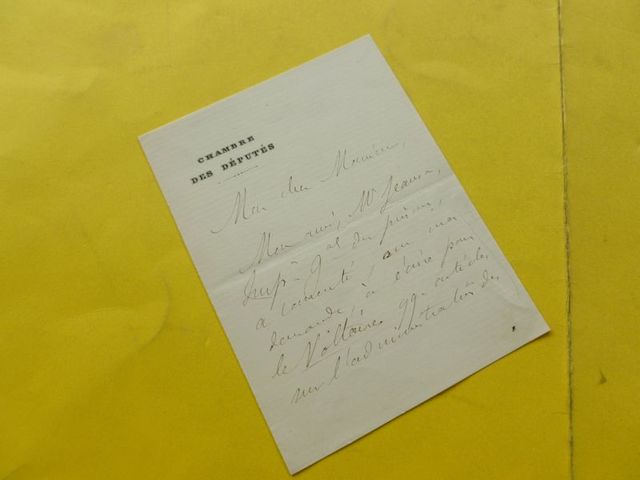 CHAMBRE
DES DÉPUTÉS
Mon cher Monsieur,
Mon ami, Mr
Insp. gal des prisons,
a consenti, sur ma
demande, à écrire pour
le Voltaire qq. articles
sur l'administration des